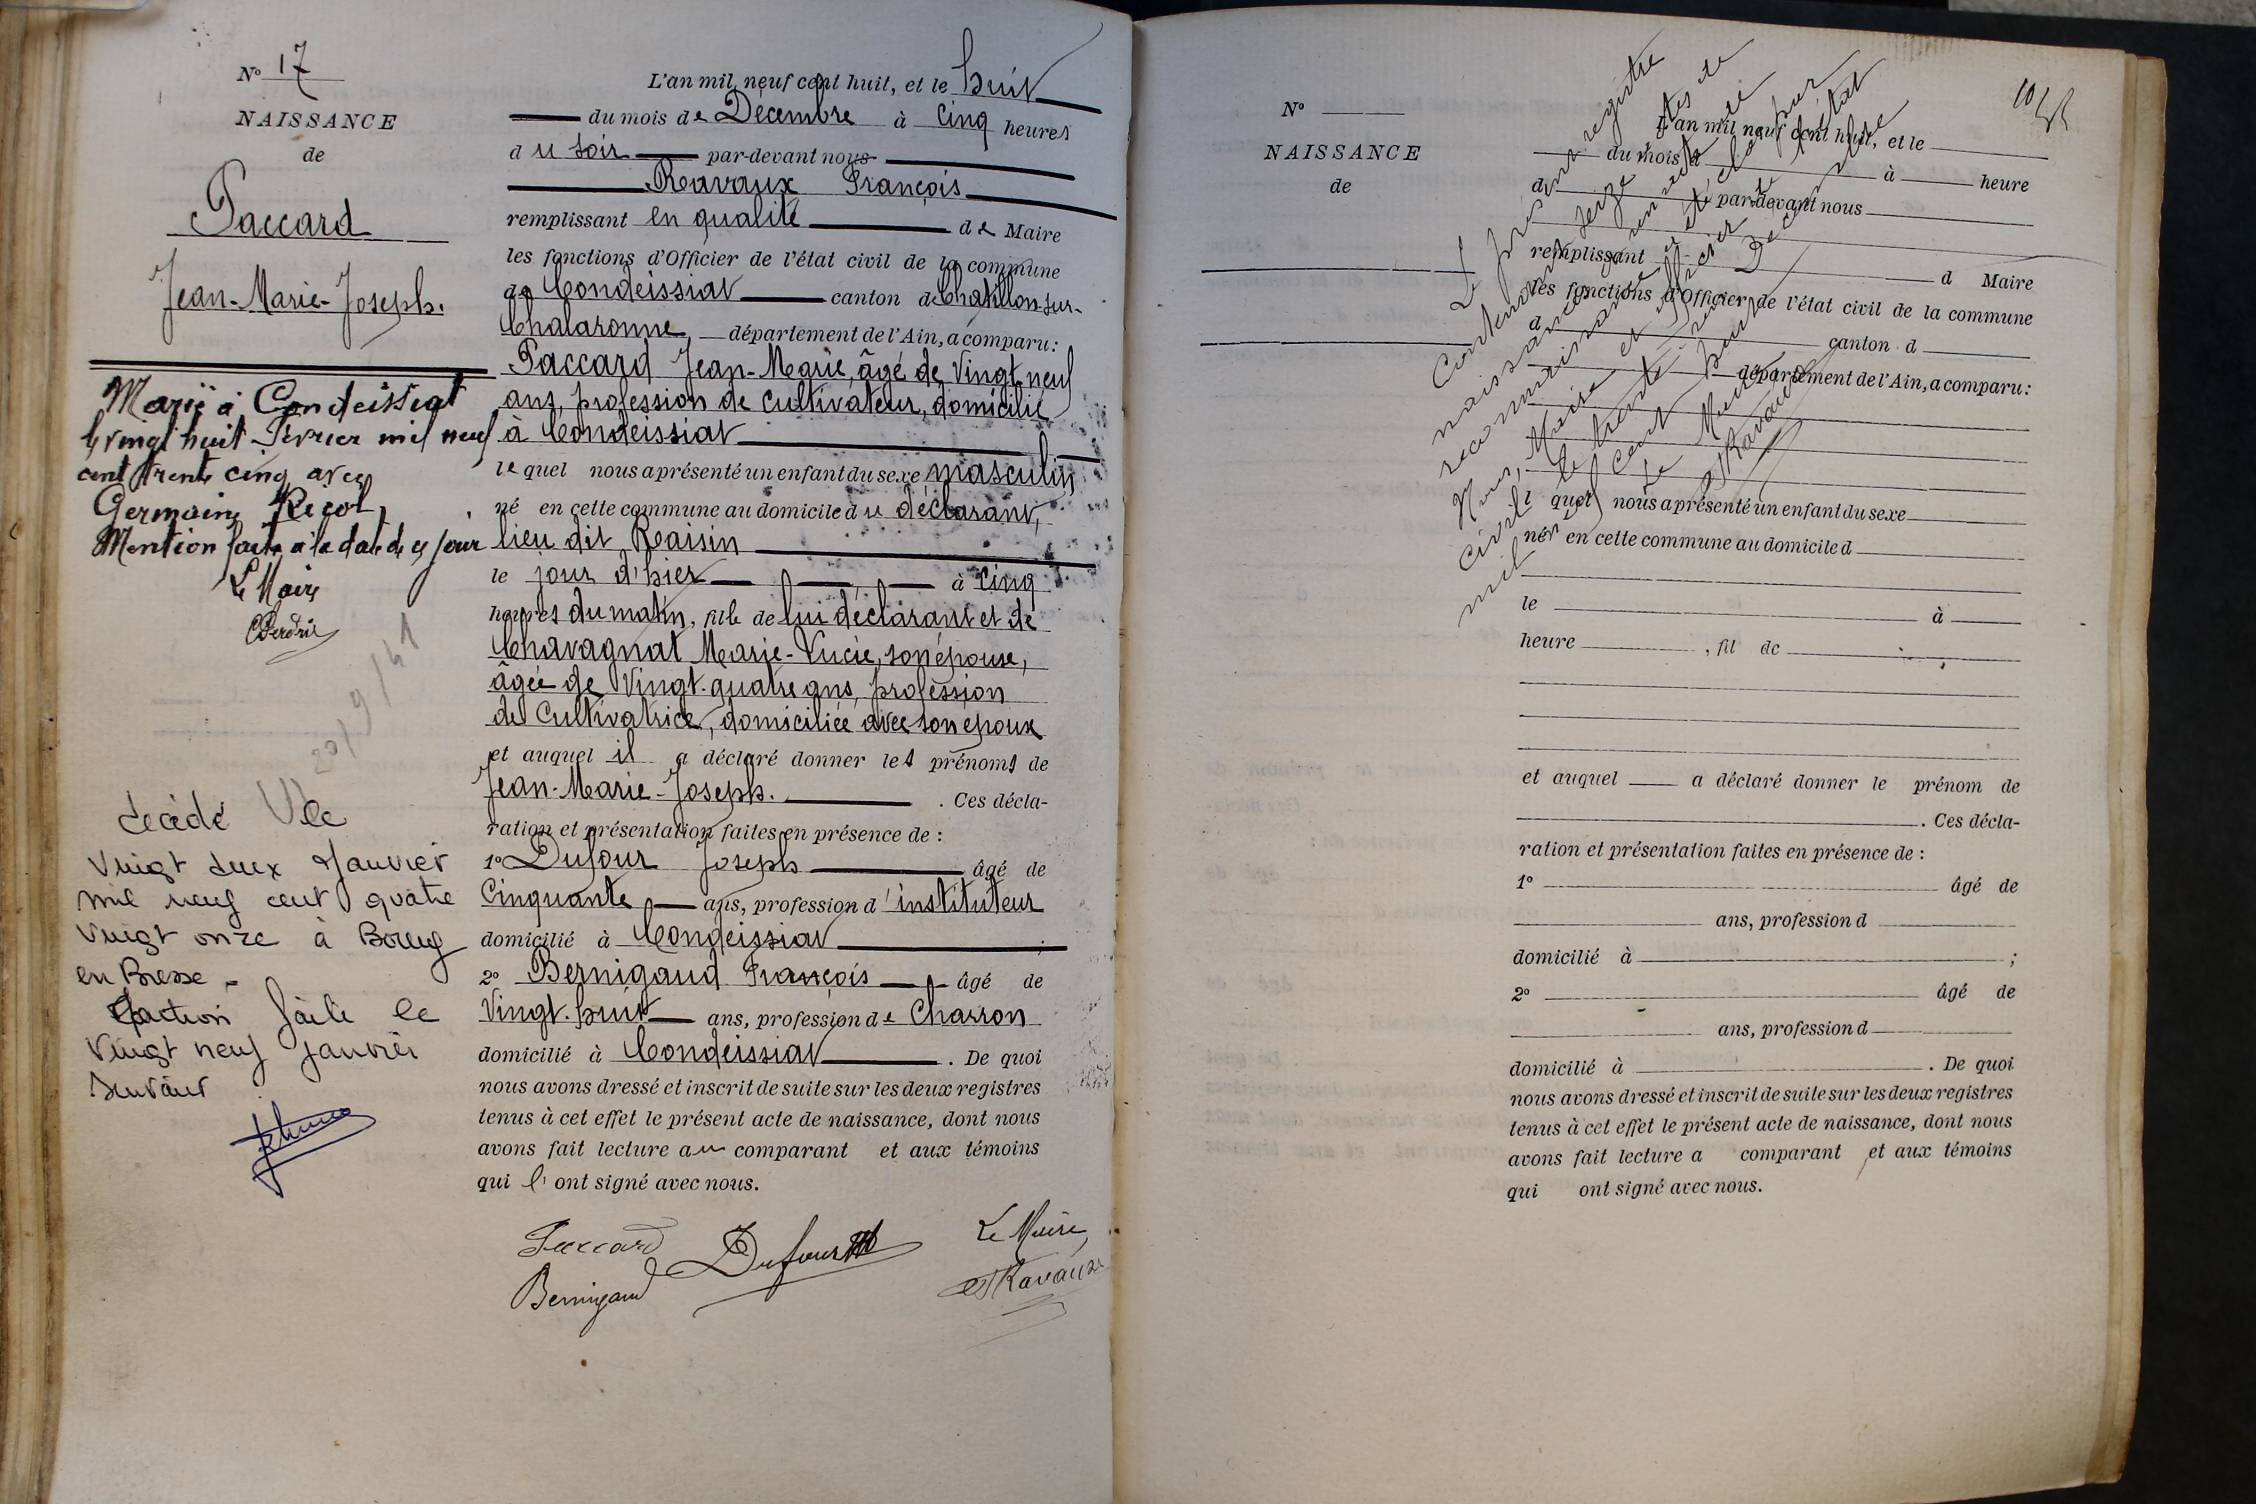 N° 17
NAISSANCE
de
Paccard
Jean-Marie-Joseph.
Marié à Condeissiat
le vingt huit Février mil neuf
cent trente cinq avec
Germaine
Mention faite à la date de ce jour
Le Maire
20/9/41
décédé le
vingt deux Janvier
mil neuf cent quatre
vingt onze à Bourg
en Bresse -
faite le
vingt neuf janvier
suivant
L'an mil neuf cent huit, et le huit
du mois de Décembre à Cinq heures
du soir par-devant nous
Ravaux François
remplissant en qualité de Maire
les fonctions d'Officier de l'état civil de la commune
de Condeissiat canton de Chatillon-sur-
Chalaronne, département de l'Ain, a comparu:
Paccard Jean-Marie, âgé de Vingt neuf
ans, profession de Cultivateur, domicilié
à Condeissiat
le quel nous a présenté un enfant du sexe masculin,
né en cette commune au domicile du déclarant,
lieu dit Raisin
le jour d'hier à Cinq
heures du matin, fils de lui déclarant et de
Chavagnat Marie-Lucie, son épouse,
âgée de Vingt-quatre ans, profession
de Cultivatrice, domiciliée avec son époux
et auquel il a déclaré donner les prénoms de
Jean-Marie-Joseph. . Ces décla-
ration et présentation faites en présence de :
1° Dufour Joseph âgé de
Cinquante ans, profession d'instituteur
domicilié à Condeissiat ;
2° Bernigaud François âgé de
Vingt-huit ans, profession de Charron
domicilié à Condeissiat . De quoi
nous avons dressé et inscrit de suite sur les deux registres
tenus à cet effet le présent acte de naissance, dont nous
avons fait lecture au comparant et aux témoins
qui l'ont signé avec nous.
Paccard Dufour Le Maire,
Bernigaud Ravaux
N°
NAISSANCE
de
L'an mil neuf cent huit, et le
du mois d à heure
d par-devant nous
remplissant d Maire
les fonctions d'Officier de l'état civil de la commune
d canton d
département de l'Ain, a comparu:
l quel nous a présenté un enfant du sexe
né en cette commune au domicile d
le à
heure , fil de
et auquel a déclaré donner le prénom de
. Ces décla-
ration et présentation faites en présence de :
1° âgé de
ans, profession d
domicilié à ;
2° âgé de
ans, profession d
domicilié à . De quoi
nous avons dressé et inscrit de suite sur les deux registres
tenus à cet effet le présent acte de naissance, dont nous
avons fait lecture a comparant et aux témoins
qui ont signé avec nous.
Le présent registre
Contenant seize actes de
naissance
reconnaissance
Nous, Maire et Officier de l'état
civil le trente Décembre
mil neuf cent huit
Le Maire
Ravaux